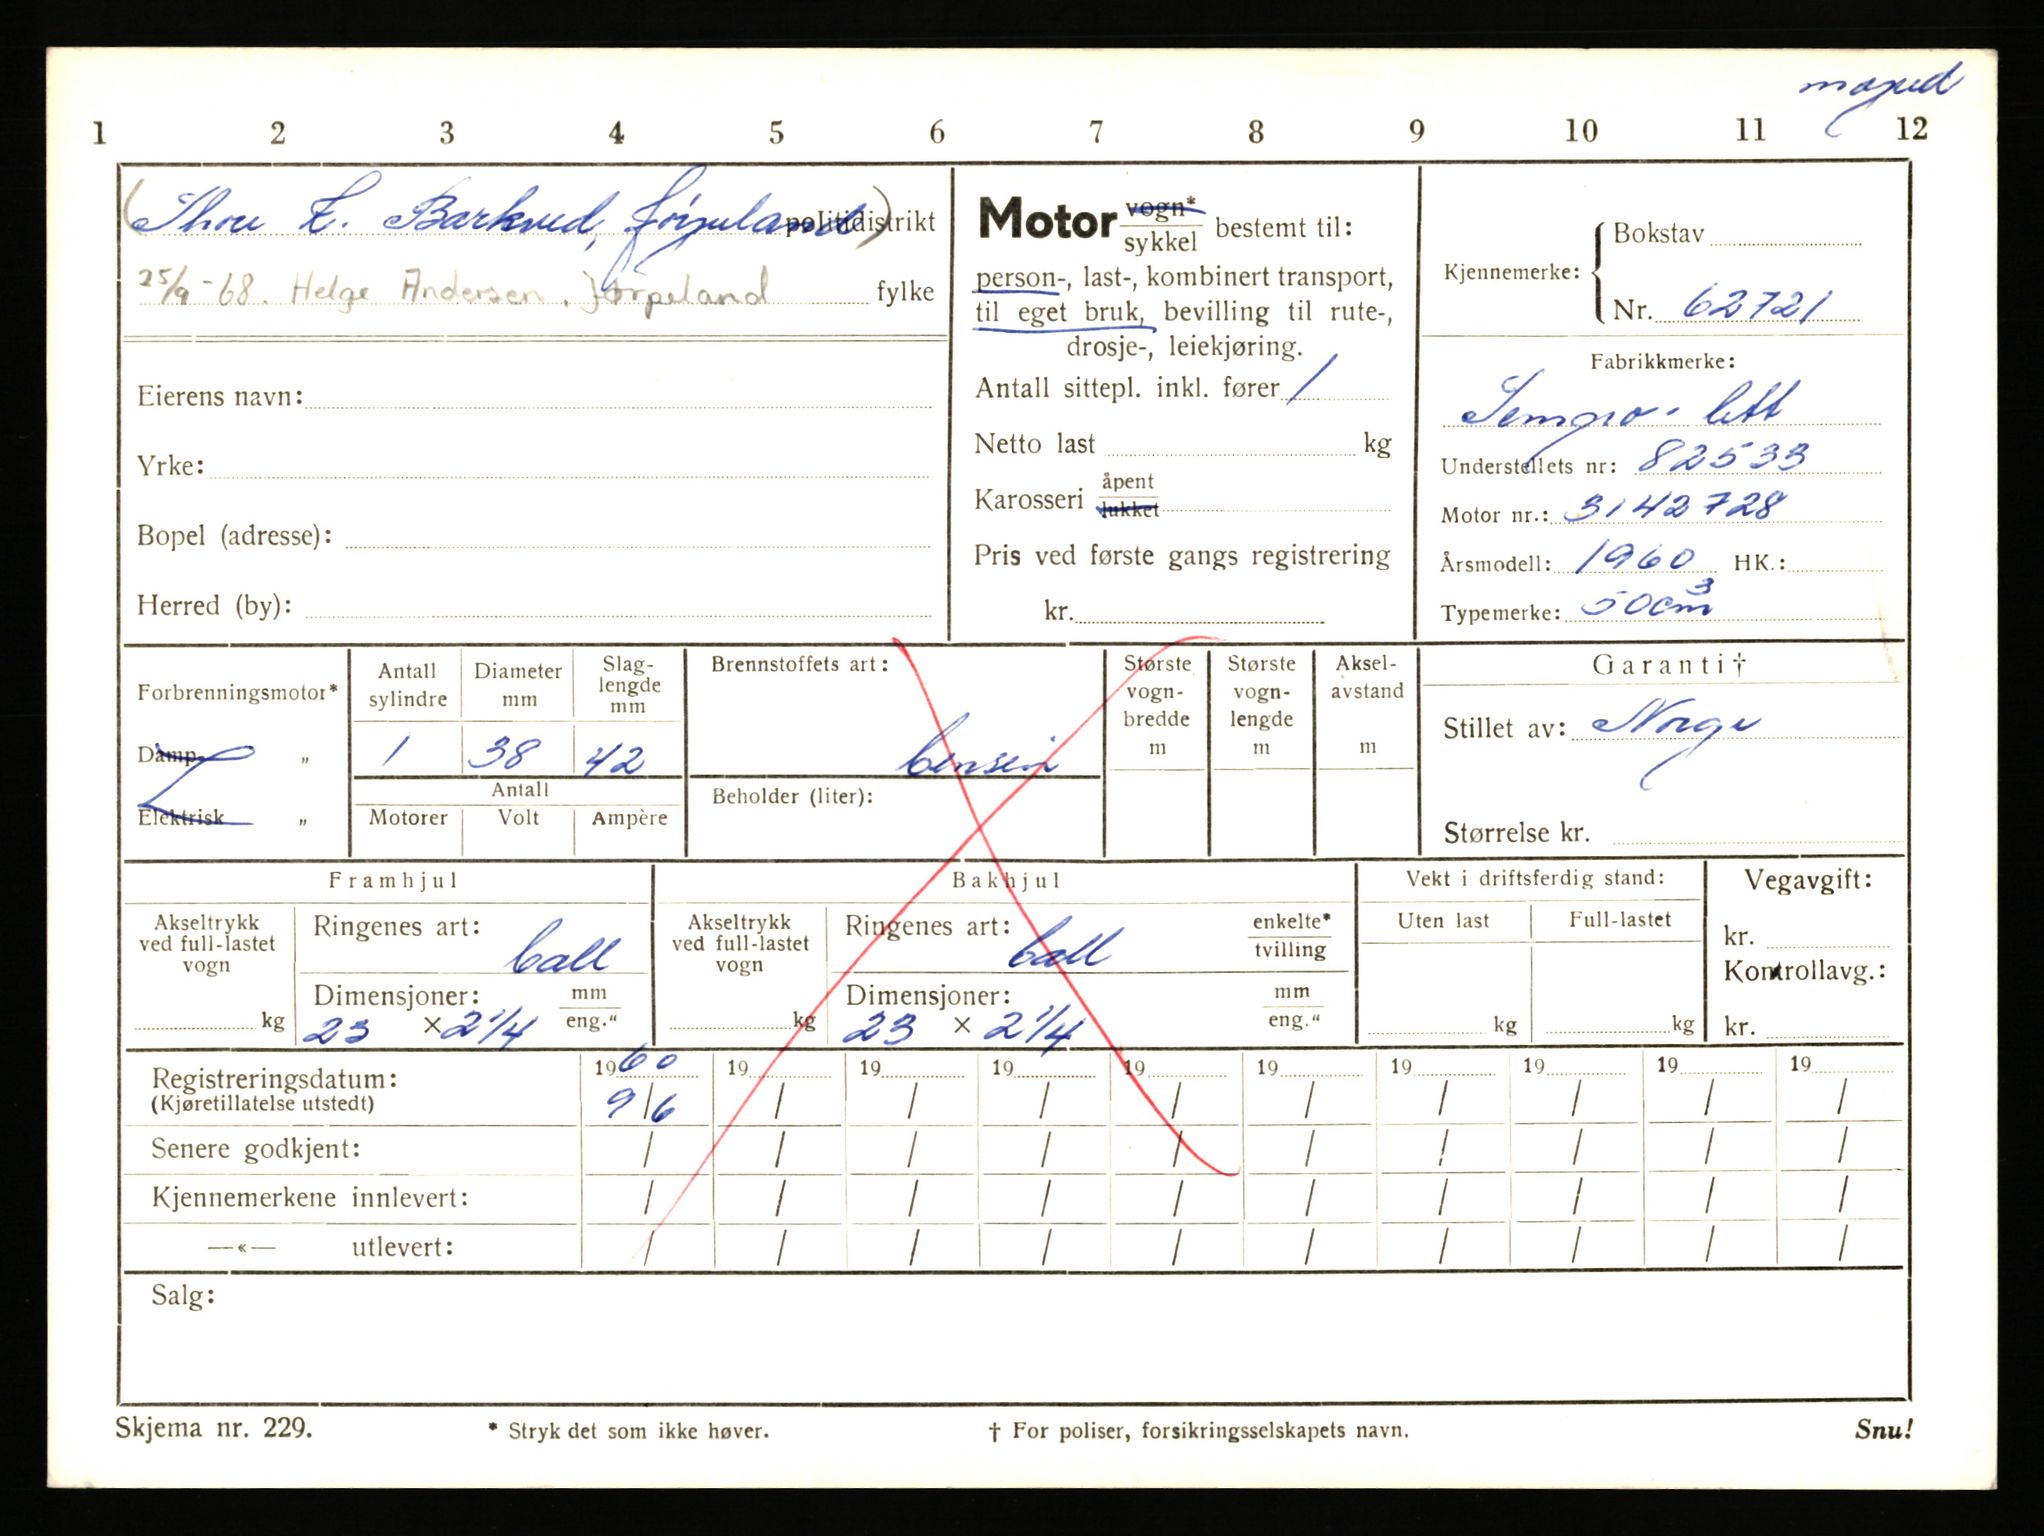 moped
1 2 3 4 5 6 7 8 9 10 11 12
(Thou E. Barkved, Jørpeland) politidistrikt
25/9-68. Helge Andersen. Jørpeland fylke
Eierens navn:
Yrke:
Bopel (adresse):
Herred (by):
Motor vogn* sykkel bestemt til:
person-, last-, kombinert transport,
til eget bruk, bevilling til rute-,
drosje-, leiekjøring.
Antall sittepl. inkl. fører 1
Netto last kg
Karosseri åpent lukket
Pris ved første gangs registrering
kr.
Kjennemerke: { Bokstav
Nr. 62721
Fabrikkmerke:
Tempo-lett
Understellets nr: 82533
Motor nr.: 3142728
Årsmodell: 1960 HK.:
Typemerke: 50cm³
Forbrenningsmotor*
Damp- „
Elektrisk „
Antall sylindre
Diameter mm
Slag-lengde mm
1 38 42
Antall
Motorer Volt Ampère
Brennstoffets art:
bensin
Beholder (liter):
Største vogn-bredde m
Største vogn-lengde m
Aksel-avstand m
Garanti†
Stillet av: Norge
Størrelse kr.
Framhjul
Akseltrykk ved full-lastet vogn
kg
Ringenes art: ball
Dimensjoner: mm eng.“
23 × 2 1/4
Bakhjul
Akseltrykk ved full-lastet vogn
kg
Ringenes art: ball enkelte* tvilling
Dimensjoner: mm eng.“
23 × 2 1/4
Vekt i driftsferdig stand:
Uten last Full-lastet
kg kg
Vegavgift:
kr.
Kontrollavg.:
kr.
Registreringsdatum: 1960 19 19 19 19 19 19 19 19 19
(Kjøretillatelse utstedt) 9/6 / / / / / / / / /
Senere godkjent: / / / / / / / / / /
Kjennemerkene innlevert: / / / / / / / / / /
—«— utlevert: / / / / / / / / / /
Salg:
Skjema nr. 229. * Stryk det som ikke høver. † For poliser, forsikringsselskapets navn. Snu!